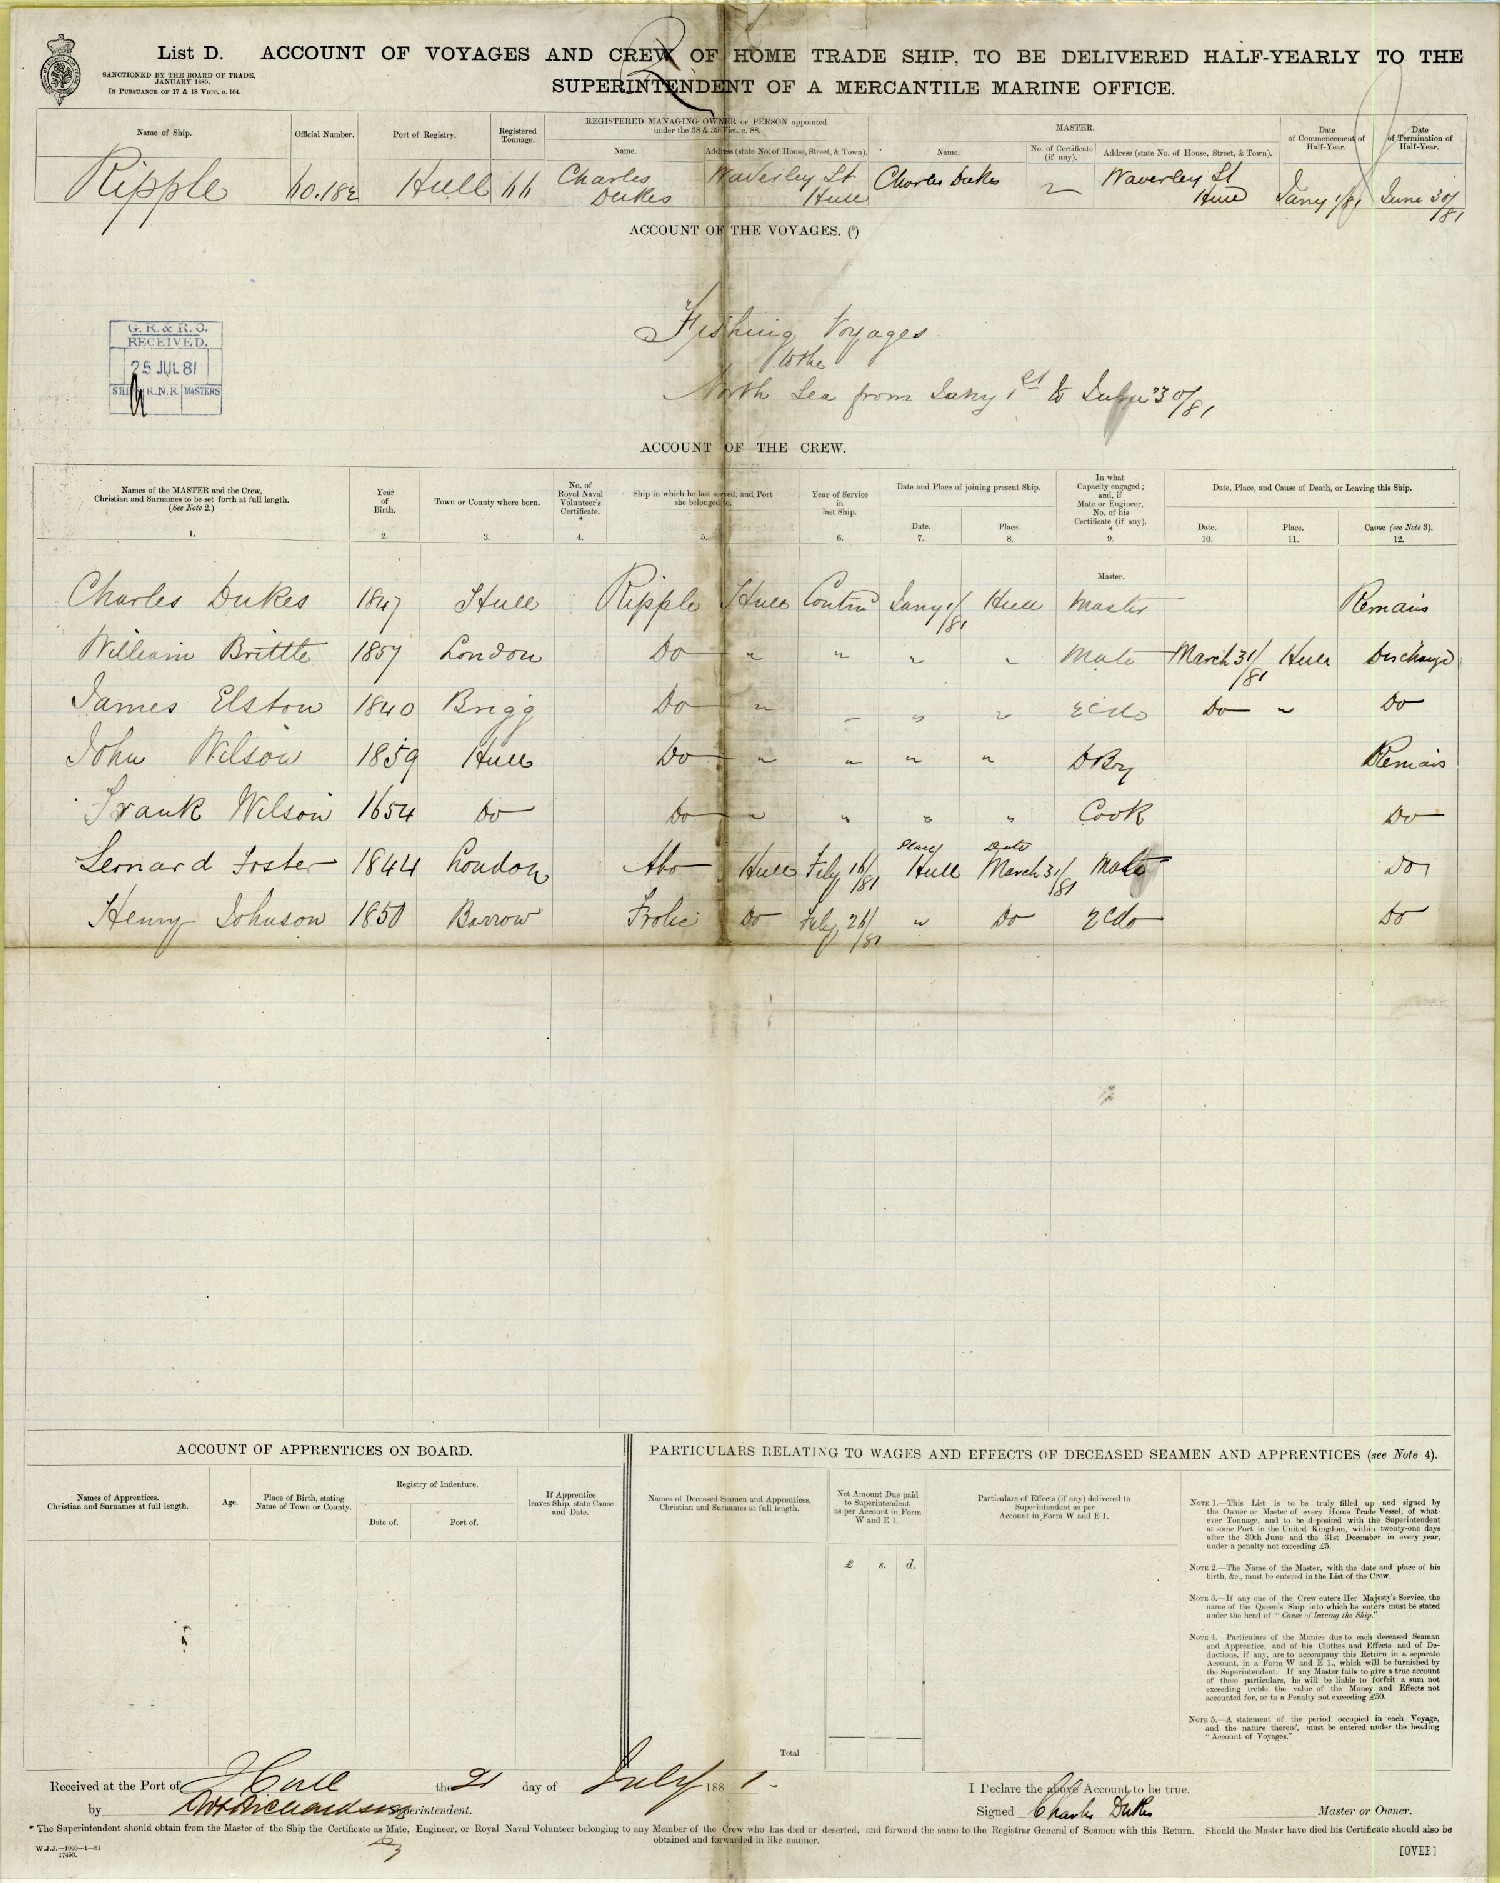 List D. ACCOUNT OF VOYAGES AND CREW OF HOME TRADE SHIP, TO BE DELIVERED HALF-YEARLY TO THE
SUPERINTENDENT OF A MERCANTILE MARINE OFFICE.
SANCTIONED BY THE BOARD OF TRADE,
JANUARY 1880.
IN PURSUANCE OF 17 & 18 VICT. c. 104.
Name of Ship. Official Number. Port of Registry. Registered Tonnage. REGISTERED MANAGING OWNER or PERSON appointed under the 38 & 39 Vict. c. 88. MASTER. Date of Commencement of Half-Year. Date of Termination of Half-Year.
Name. Address (state No. of House, Street, & Town). Name. No. of Certificate (if any). Address (state No. of House, Street, & Town).
Ripple Hull Charles Dukes Waverley St Hull Charles Dukes Waverley St Hull Jany 1/81 June 30/81
ACCOUNT OF THE VOYAGES. (⁵)
Fishing Voyages
to the
North Sea from Jany 1st to June 30/81
G.R. & R.O.
RECEIVED.
25 JUL 81
SHIPS R.N.R. MASTERS
ACCOUNT OF THE CREW.
Names of the MASTER and the Crew, Christian and Surnames to be set forth at full length. (See Note 2.) Year of Birth. Town or County where born. No. of Royal Naval Volunteer's Certificate. * Ship in which he last served, and Port she belonged to. Year of Service in last Ship. Date and Place of joining present Ship. In what Capacity engaged; and, if Mate or Engineer, No. of his Certificate (if any). * Date, Place, and Cause of Death, or Leaving this Ship.
Date. Place. Date. Place. Cause (see Note 3).
1. 2. 3. 4. 5. 6. 7. 8. 9. 10. 11. 12.
Master.
Charles Dukes 1847 Hull Ripple Hull Contin Jany 1/81 Hull Master Remains
William Brittle 1857 London Do " " " " Mate March 31/81 Hull Discharged
James Elston 1840 Brigg Do " " " " 2d do Do " Do
John Wilson 1859 Hull Do " " " " D Boy Remains
Frank Wilson 1654 Do Do " " " " Cook Do
Lernard Foster 1844 London Abo Hull Feby 16/81 Place Hull Date March 31/81 Mate Do
Henry Johnson 1850 Barrow Frolic Do Feby 26/81 " Do 2d do Do
ACCOUNT OF APPRENTICES ON BOARD.
Names of Apprentices. Christian and Surnames at full length. Age. Place of Birth, stating Name of Town or County. Registry of Indenture. If Apprentice leaves Ship, state Cause and Date.
Date of. Port of.
PARTICULARS RELATING TO WAGES AND EFFECTS OF DECEASED SEAMEN AND APPRENTICES (see Note 4).
Names of Deceased Seamen and Apprentices, Christian and Surnames at full length. Net Amount Due paid to Superintendent as per Account in Form W and E 1. Particulars of Effects (if any) delivered to Superintendent as per Account in Form W and E 1.
£ s. d.
Total
NOTE 1.—This List is to be truly filled up and signed by
the Owner or Master of every Home Trade Vessel, of what-
ever Tonnage, and to be deposited with the Superintendent
at some Port in the United Kingdom, within twenty-one days
after the 30th June and the 31st December in every year,
under a penalty not exceeding £5.
NOTE 2.—The Name of the Master, with the date and place of his
birth, &c., must be entered in the List of the Crew.
NOTE 3.—If any one of the Crew enters Her Majesty's Service, the
name of the Queen's Ship into which he enters must be stated
under the head of "Cause of leaving the Ship."
NOTE 4. Particulars of the Monies due to each deceased Seaman
and Apprentice, and of his Clothes and Effects and of De-
ductions, if any, are to accompany this Return in a separate
Account, in a Form W and E 1., which will be furnished by
the Superintendent. If any Master fails to give a true account
of these particulars, he will be liable to forfeit a sum not
exceeding treble the value of the Money and Effects not
accounted for, or to a Penalty not exceeding £50.
NOTE 5.—A statement of the period occupied in each Voyage,
and the nature thereof, must be entered under the heading
"Account of Voyages."
Received at the Port of Hull the 21 day of July 1881.
by Superintendent.
I Declare the above Account to be true.
Signed Charles Dukes Master or Owner.
* The Superintendent should obtain from the Master of the Ship the Certificate as Mate, Engineer, or Royal Naval Volunteer belonging to any Member of the Crew who has died or deserted, and forward the same to the Registrar General of Seamen with this Return. Should the Master have died his Certificate should also be
obtained and forwarded in like manner.
[OVER]